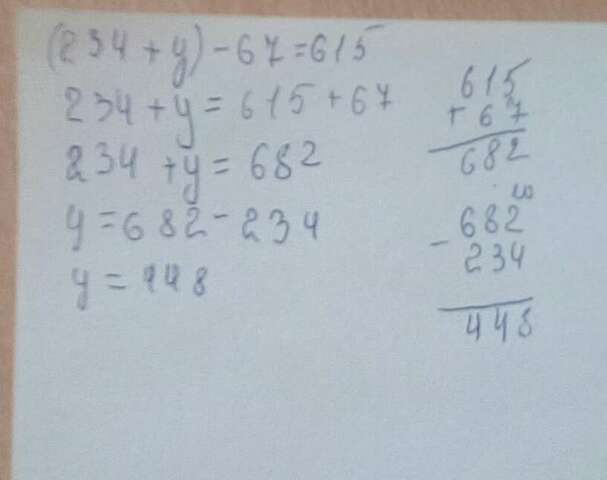 (234 + y) - 67 = 615
234 + y = 615 + 67
234 + y = 682
y = 682 - 234
y = 448
615
+ 67
682
10
682
- 234
448